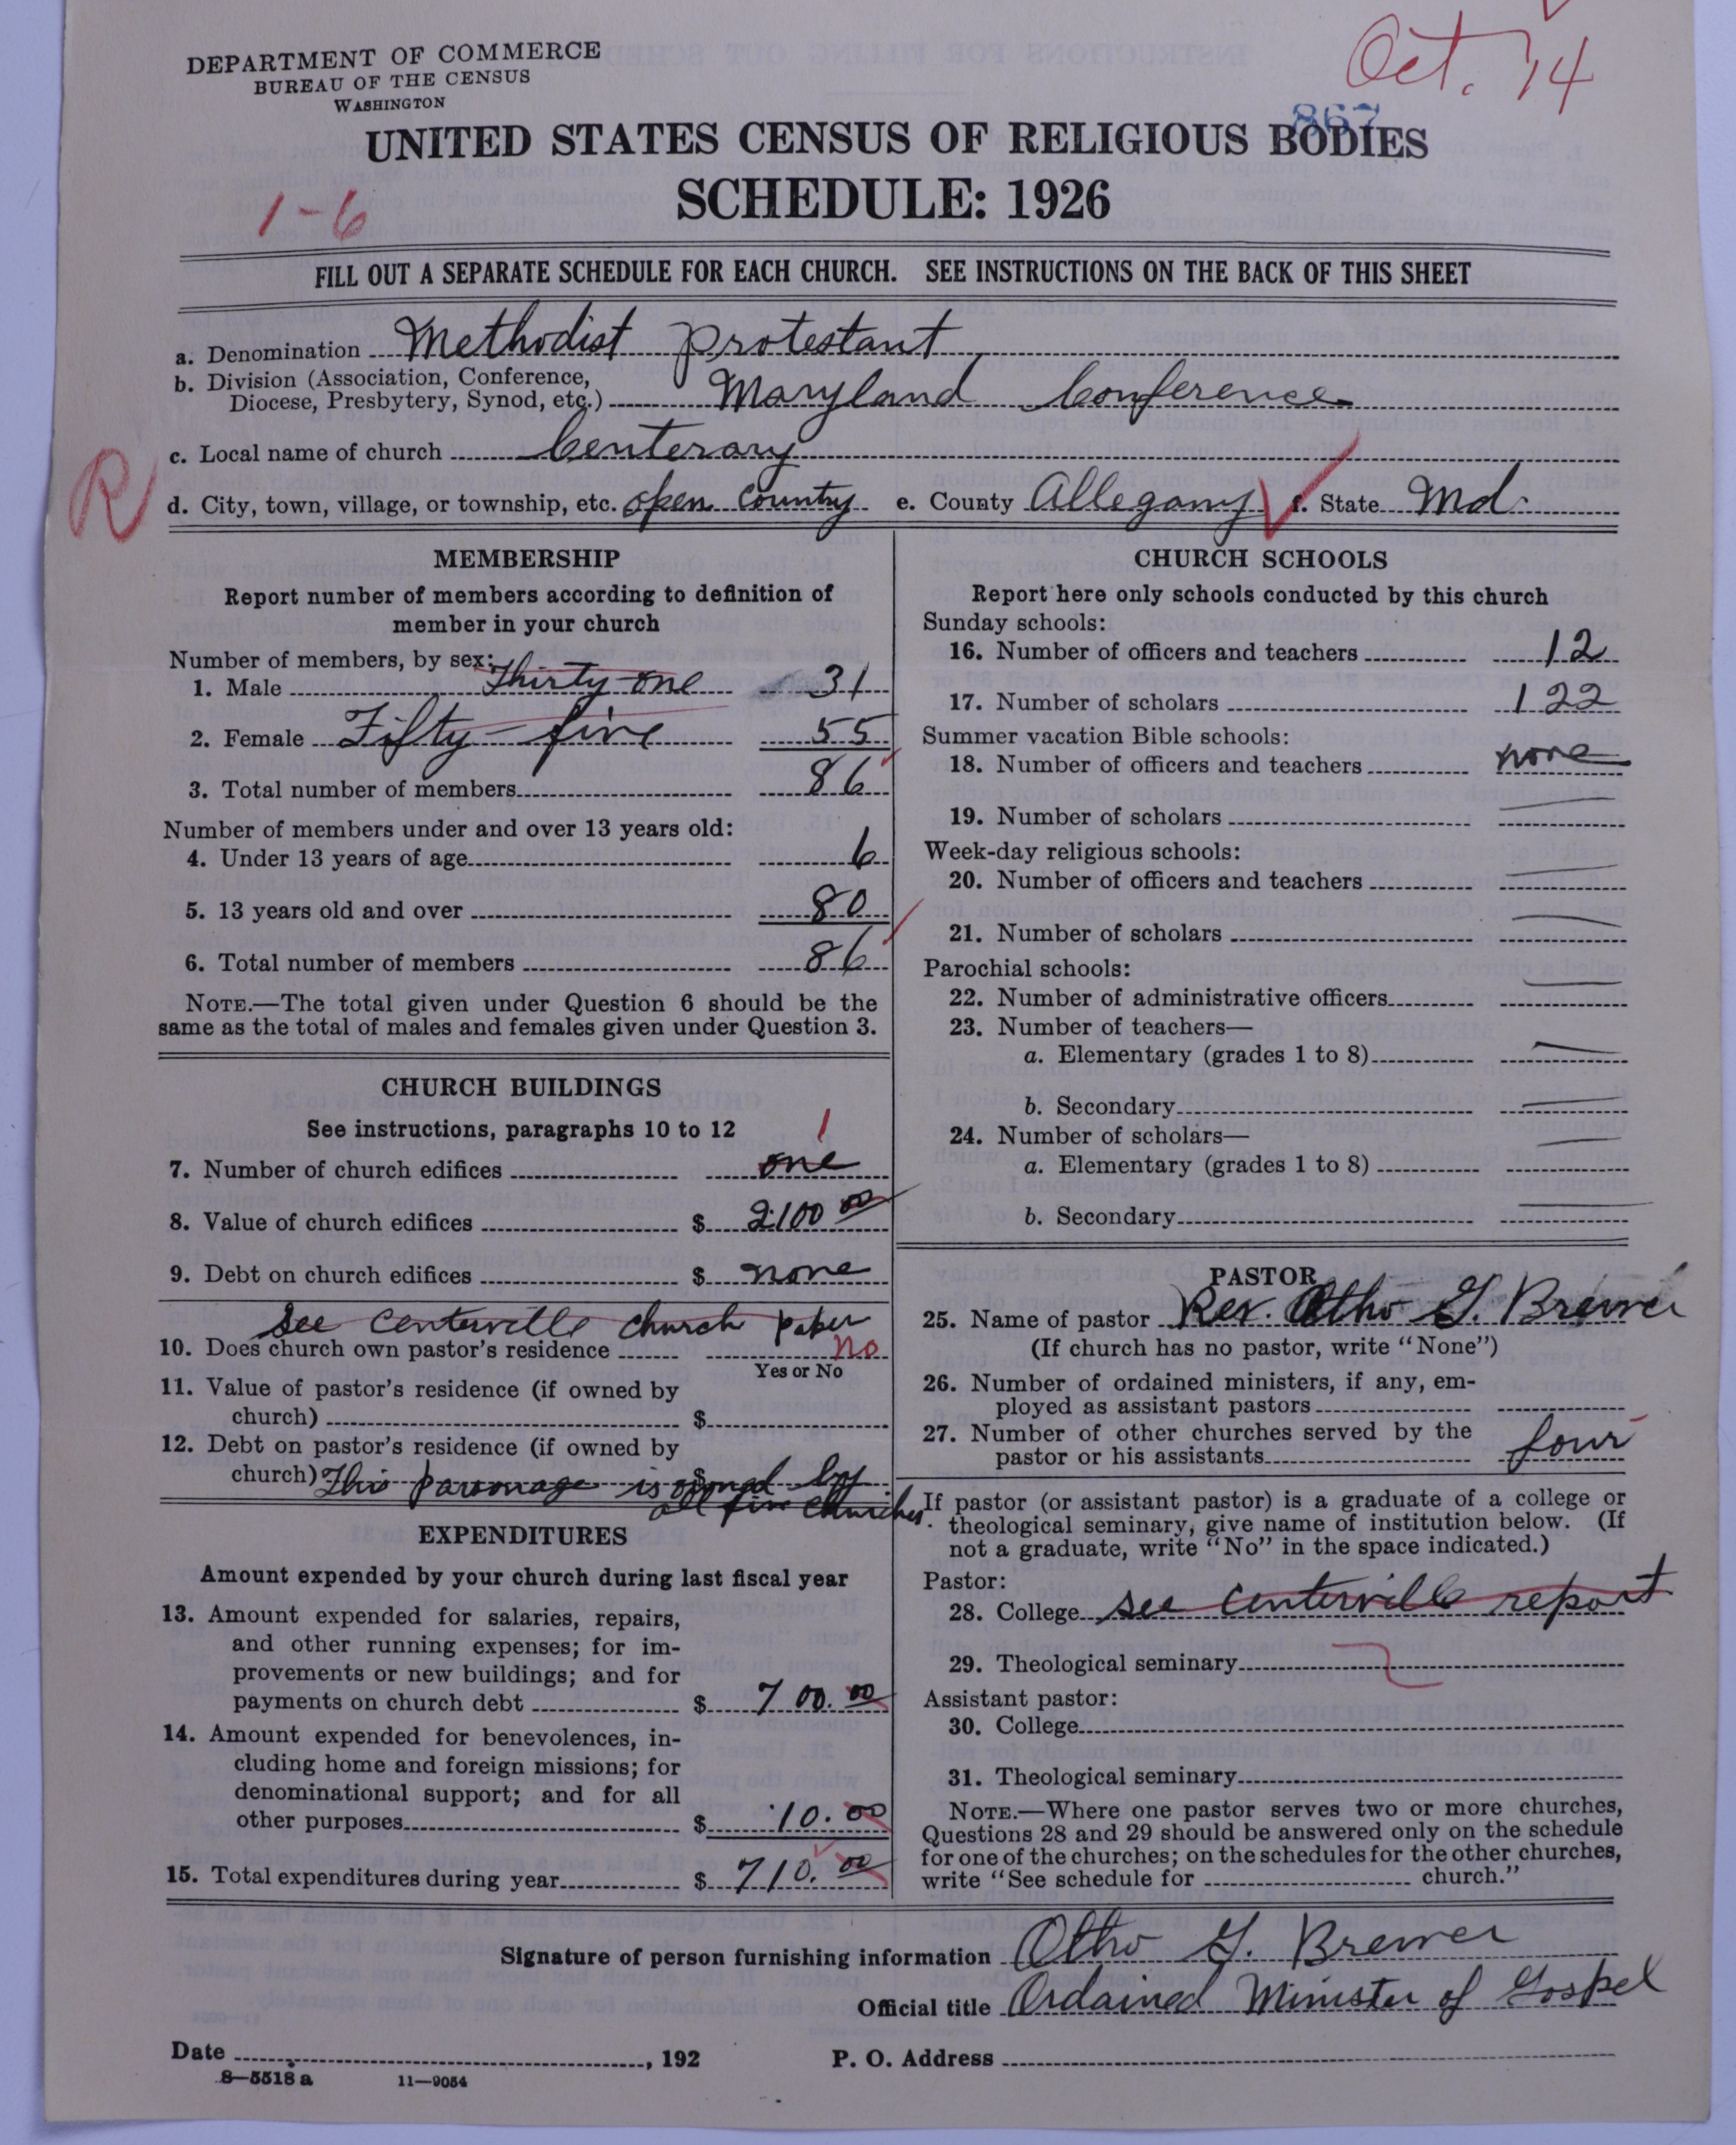 Oct. 14
DEPARTMENT OF COMMERCE
BUREAU OF THE CENSUS
WASHINGTON
867
UNITED STATES CENSUS OF RELIGIOUS BODIES
SCHEDULE: 1926
1-6
FILL OUT A SEPARATE SCHEDULE FOR EACH CHURCH. SEE INSTRUCTIONS ON THE BACK OF THIS SHEET
a. Denomination Methodist Protestant
b. Division (Association, Conference,
Diocese, Presbytery, Synod, etc.) Maryland Conference
c. Local name of church Centerary
R
d. City, town, village, or township, etc. open country e. County Allegany f. State Md.
MEMBERSHIP
Report number of members according to definition of
member in your church
Number of members, by sex:
1. Male Thirty-one 31
2. Female Fifty-five 55
3. Total number of members 86
Number of members under and over 13 years old:
4. Under 13 years of age 6
5. 13 years old and over 80
6. Total number of members 86
NOTE.—The total given under Question 6 should be the
same as the total of males and females given under Question 3.
CHURCH BUILDINGS
See instructions, paragraphs 10 to 12
1
7. Number of church edifices one
8. Value of church edifices $ 2100 00
9. Debt on church edifices $ none
See Centerville church paper
10. Does church own pastor's residence No
Yes or No
11. Value of pastor's residence (if owned by
church) $
12. Debt on pastor's residence (if owned by
church) $ This parsonage is owned by
all five churches.
EXPENDITURES
Amount expended by your church during last fiscal year
13. Amount expended for salaries, repairs,
and other running expenses; for im-
provements or new buildings; and for
payments on church debt $ 700.00
14. Amount expended for benevolences, in-
cluding home and foreign missions; for
denominational support; and for all
other purposes $ 10.00
15. Total expenditures during year $ 710.00
CHURCH SCHOOLS
Report here only schools conducted by this church
Sunday schools:
16. Number of officers and teachers 12
17. Number of scholars 122
Summer vacation Bible schools:
18. Number of officers and teachers none
19. Number of scholars
Week-day religious schools:
20. Number of officers and teachers
21. Number of scholars
Parochial schools:
22. Number of administrative officers
23. Number of teachers—
a. Elementary (grades 1 to 8)
b. Secondary
24. Number of scholars—
a. Elementary (grades 1 to 8)
b. Secondary
PASTOR
25. Name of pastor Rev. Otho G. Brewer
(If church has no pastor, write "None")
26. Number of ordained ministers, if any, em-
ployed as assistant pastors
27. Number of other churches served by the
pastor or his assistants four
If pastor (or assistant pastor) is a graduate of a college or
theological seminary, give name of institution below. (If
not a graduate, write "No" in the space indicated.)
Pastor:
28. College see Centerville report
29. Theological seminary
Assistant pastor:
30. College
31. Theological seminary
NOTE.—Where one pastor serves two or more churches,
Questions 28 and 29 should be answered only on the schedule
for one of the churches; on the schedules for the other churches,
write "See schedule for church."
Signature of person furnishing information Otho G. Brewer
Official title Ordained Minister of Gospel
Date , 192 P. O. Address
8—5518 a 11—9054